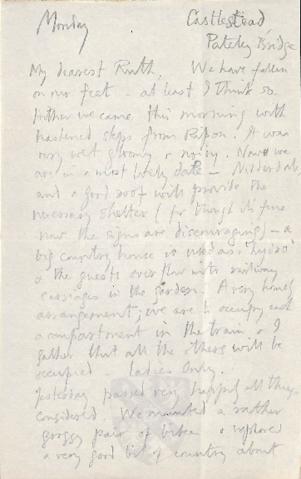 Monday
Castlestead
Pateley Bridge
My dearest Ruth, We have fallen
on our feet - at least I think so.
hither we came this morning with
hastened steps from Ripon! It was
very wet gloomy & noisy. Now we
are in a most lovely dale - Nidderdale
and a good roof will provide the
necessary shelter (for though it's fine
now the signs are discouraging) - a
big country house is used as a 'hydro'
& the guests overflow into railway
carriages in the garden. A very homely
arrangement; we are to occupy each
a compartment in the train & I
gather that all the others will be
occupied - Ladies Only.
Yesterday passed very happily all things
considered. We mounted a rather
groggy pair of bikes & explored
a very good bit of country about